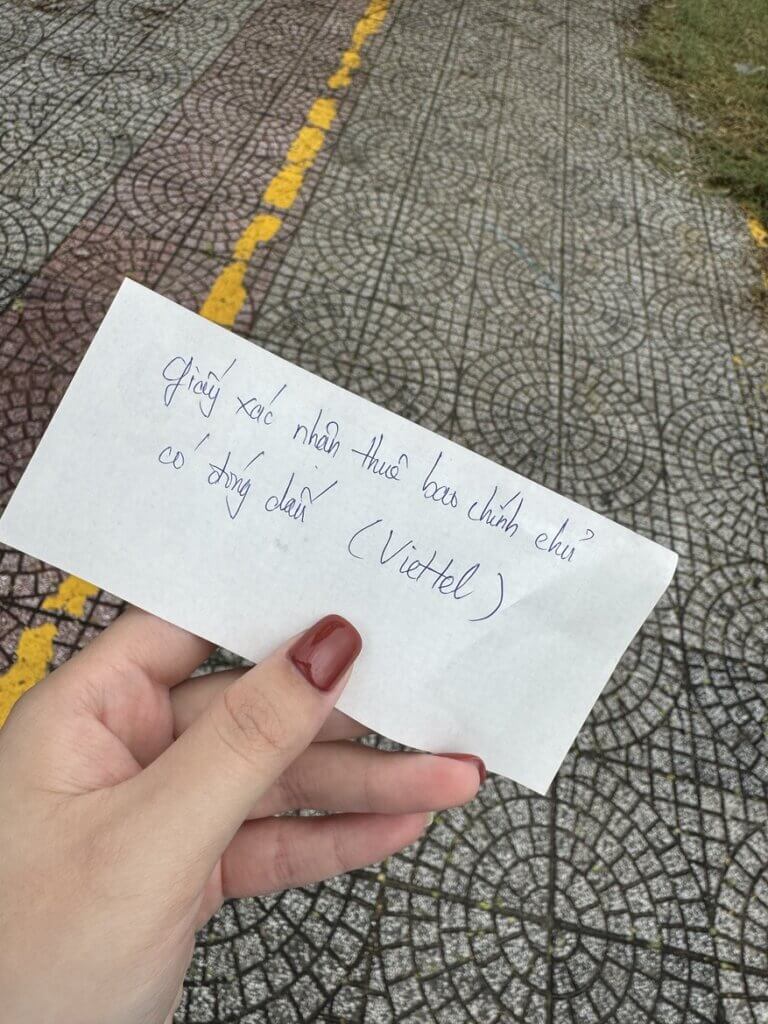 Giấy xác nhận thuê bao chính chủ
có đóng dấu (Viettel)